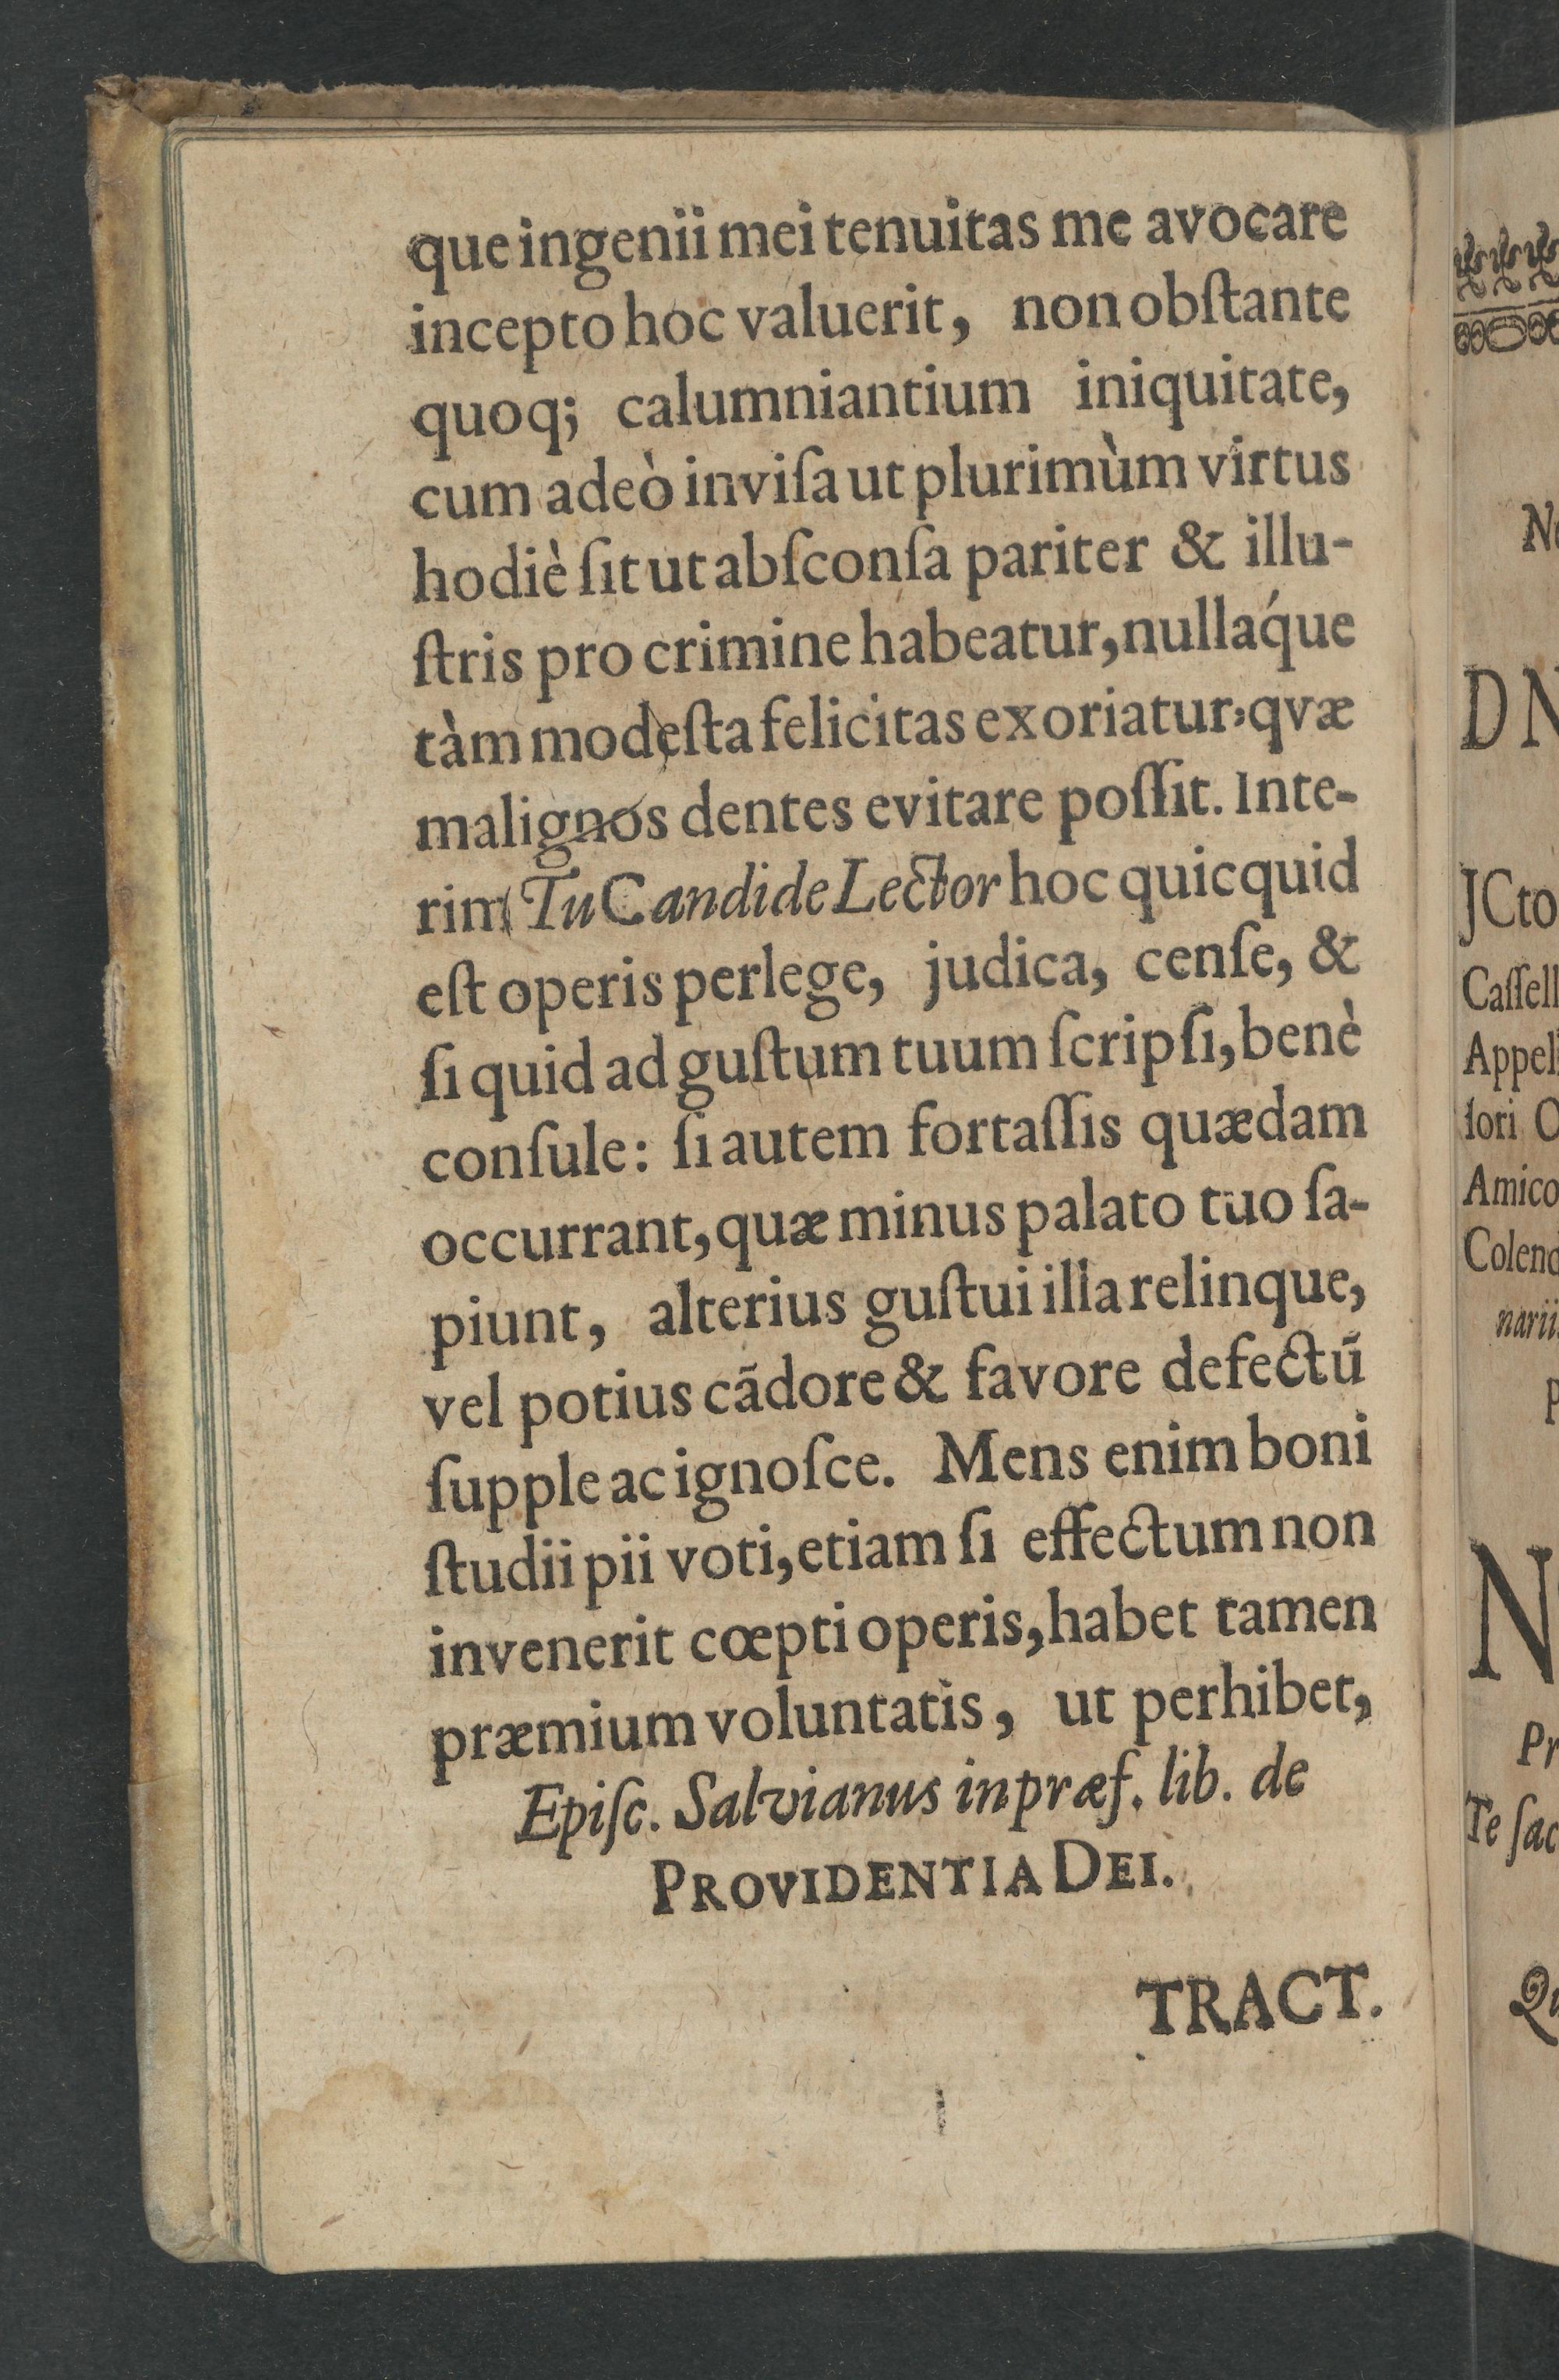 que ingenii mei tenuitas me avocare
incepto hoc valuerit, non obſtante
quoq; calumniantium iniquitate,
cum adeò inviſa ut plurimùm virtus
hodiè ſit ut abſconſa pariter & illu-
ſtris pro crimine habeatur, nullaq́ue
tàm modeſta felicitas exoriatur, qvæ
malignos dentes evitare poſſit. Inte-
rim Tu Candide Lector hoc quicquid
eſt operis perlege, judica, cenſe, &
ſi quid ad guſtum tuum ſcripſi, benè
conſule: ſi autem fortaſſis quædam
occurrant, quæ minus palato tuo ſa-
piunt, alterius guſtui illa relinque,
vel potius cãdore & favore defectũ
ſupple ac ignoſce. Mens enim boni
ſtudii pii voti, etiam ſi effectum non
invenerit cœpti operis, habet tamen
præmium voluntatis, ut perhibet,
Epiſc. Salvianus in præf. lib. de
PROVIDENTIA DEI.
TRACT.
JCto
Caſſell
Appel
Amico
Colend
narii
Te ſac